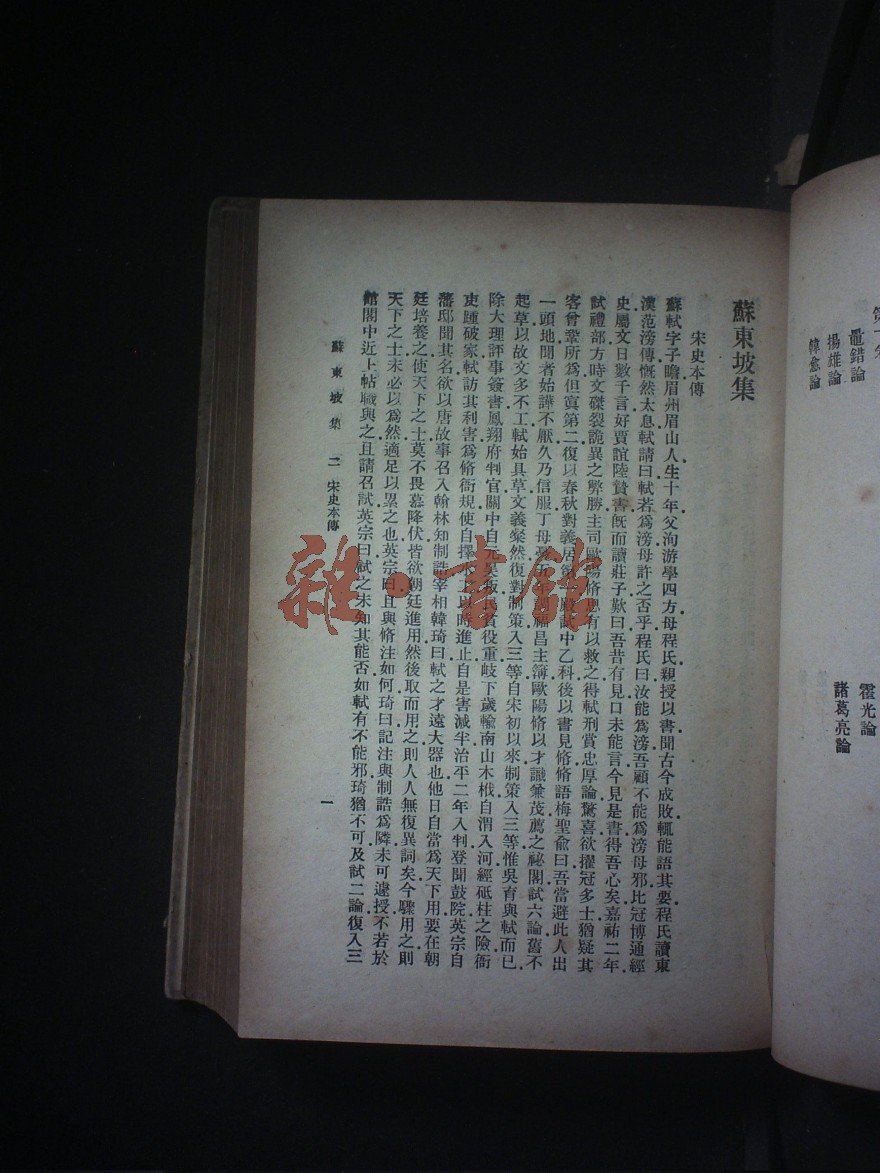 霍光論
諸葛亮論
鼂錯論
揚雄論
韓愈論
蘇東坡集
宋史本傳
蘇軾字子瞻眉州眉山人生十年父洵游學四方母程氏親授以書聞古今成敗輒能語其要程氏讀東
漢范滂傳慨然太息軾請曰軾若爲滂母許之否乎程氏曰汝能爲滂吾顧不能爲滂母邪比冠博通經
史屬文日數千言好賈誼陸贄書旣而讀莊子歎曰吾昔有見口未能言今見是書得吾心矣嘉祐二年
試禮部方時文磔裂詭異之弊勝主司歐陽脩思有以救之得軾刑賞忠厚論驚喜欲擢冠多士猶疑其
客曾鞏所爲但寘第二復以春秋對義居第一殿試中乙科後以書見脩脩語梅聖俞曰吾當避此人出
一頭地聞者始譁不厭久乃信服丁母憂五年調福昌主簿歐陽脩以才識兼茂薦之祕閣試六論舊不
起草以故文多不工軾始具草文義粲然復對制策入三等自宋初以來制策入三等惟吳育與軾而已
除大理評事簽書鳳翔府判官關中自元昊叛民貧役重岐下歲輸南山木栰自渭入河經砥柱之險衙
吏踵破家軾訪其利害爲脩衙規使自擇水工以時進止自是害減半治平二年入判登聞鼓院英宗自
藩邸聞其名欲以唐故事召入翰林知制誥宰相韓琦曰軾之才遠大器也他日自當爲天下用要在朝
廷培養之使天下之士莫不畏慕降伏皆欲朝廷進用然後取而用之則人人無復異詞矣今驟用之則
天下之士未必以爲然適足以累之也英宗曰且與脩注如何琦曰記注與制誥爲隣未可遽授不若於
館閣中近上帖職與之且請召試英宗曰試之未知其能否如軾有不能邪琦猶不可及試二論復入三
蘇東坡集 二 宋史本傳 一
雜·書館